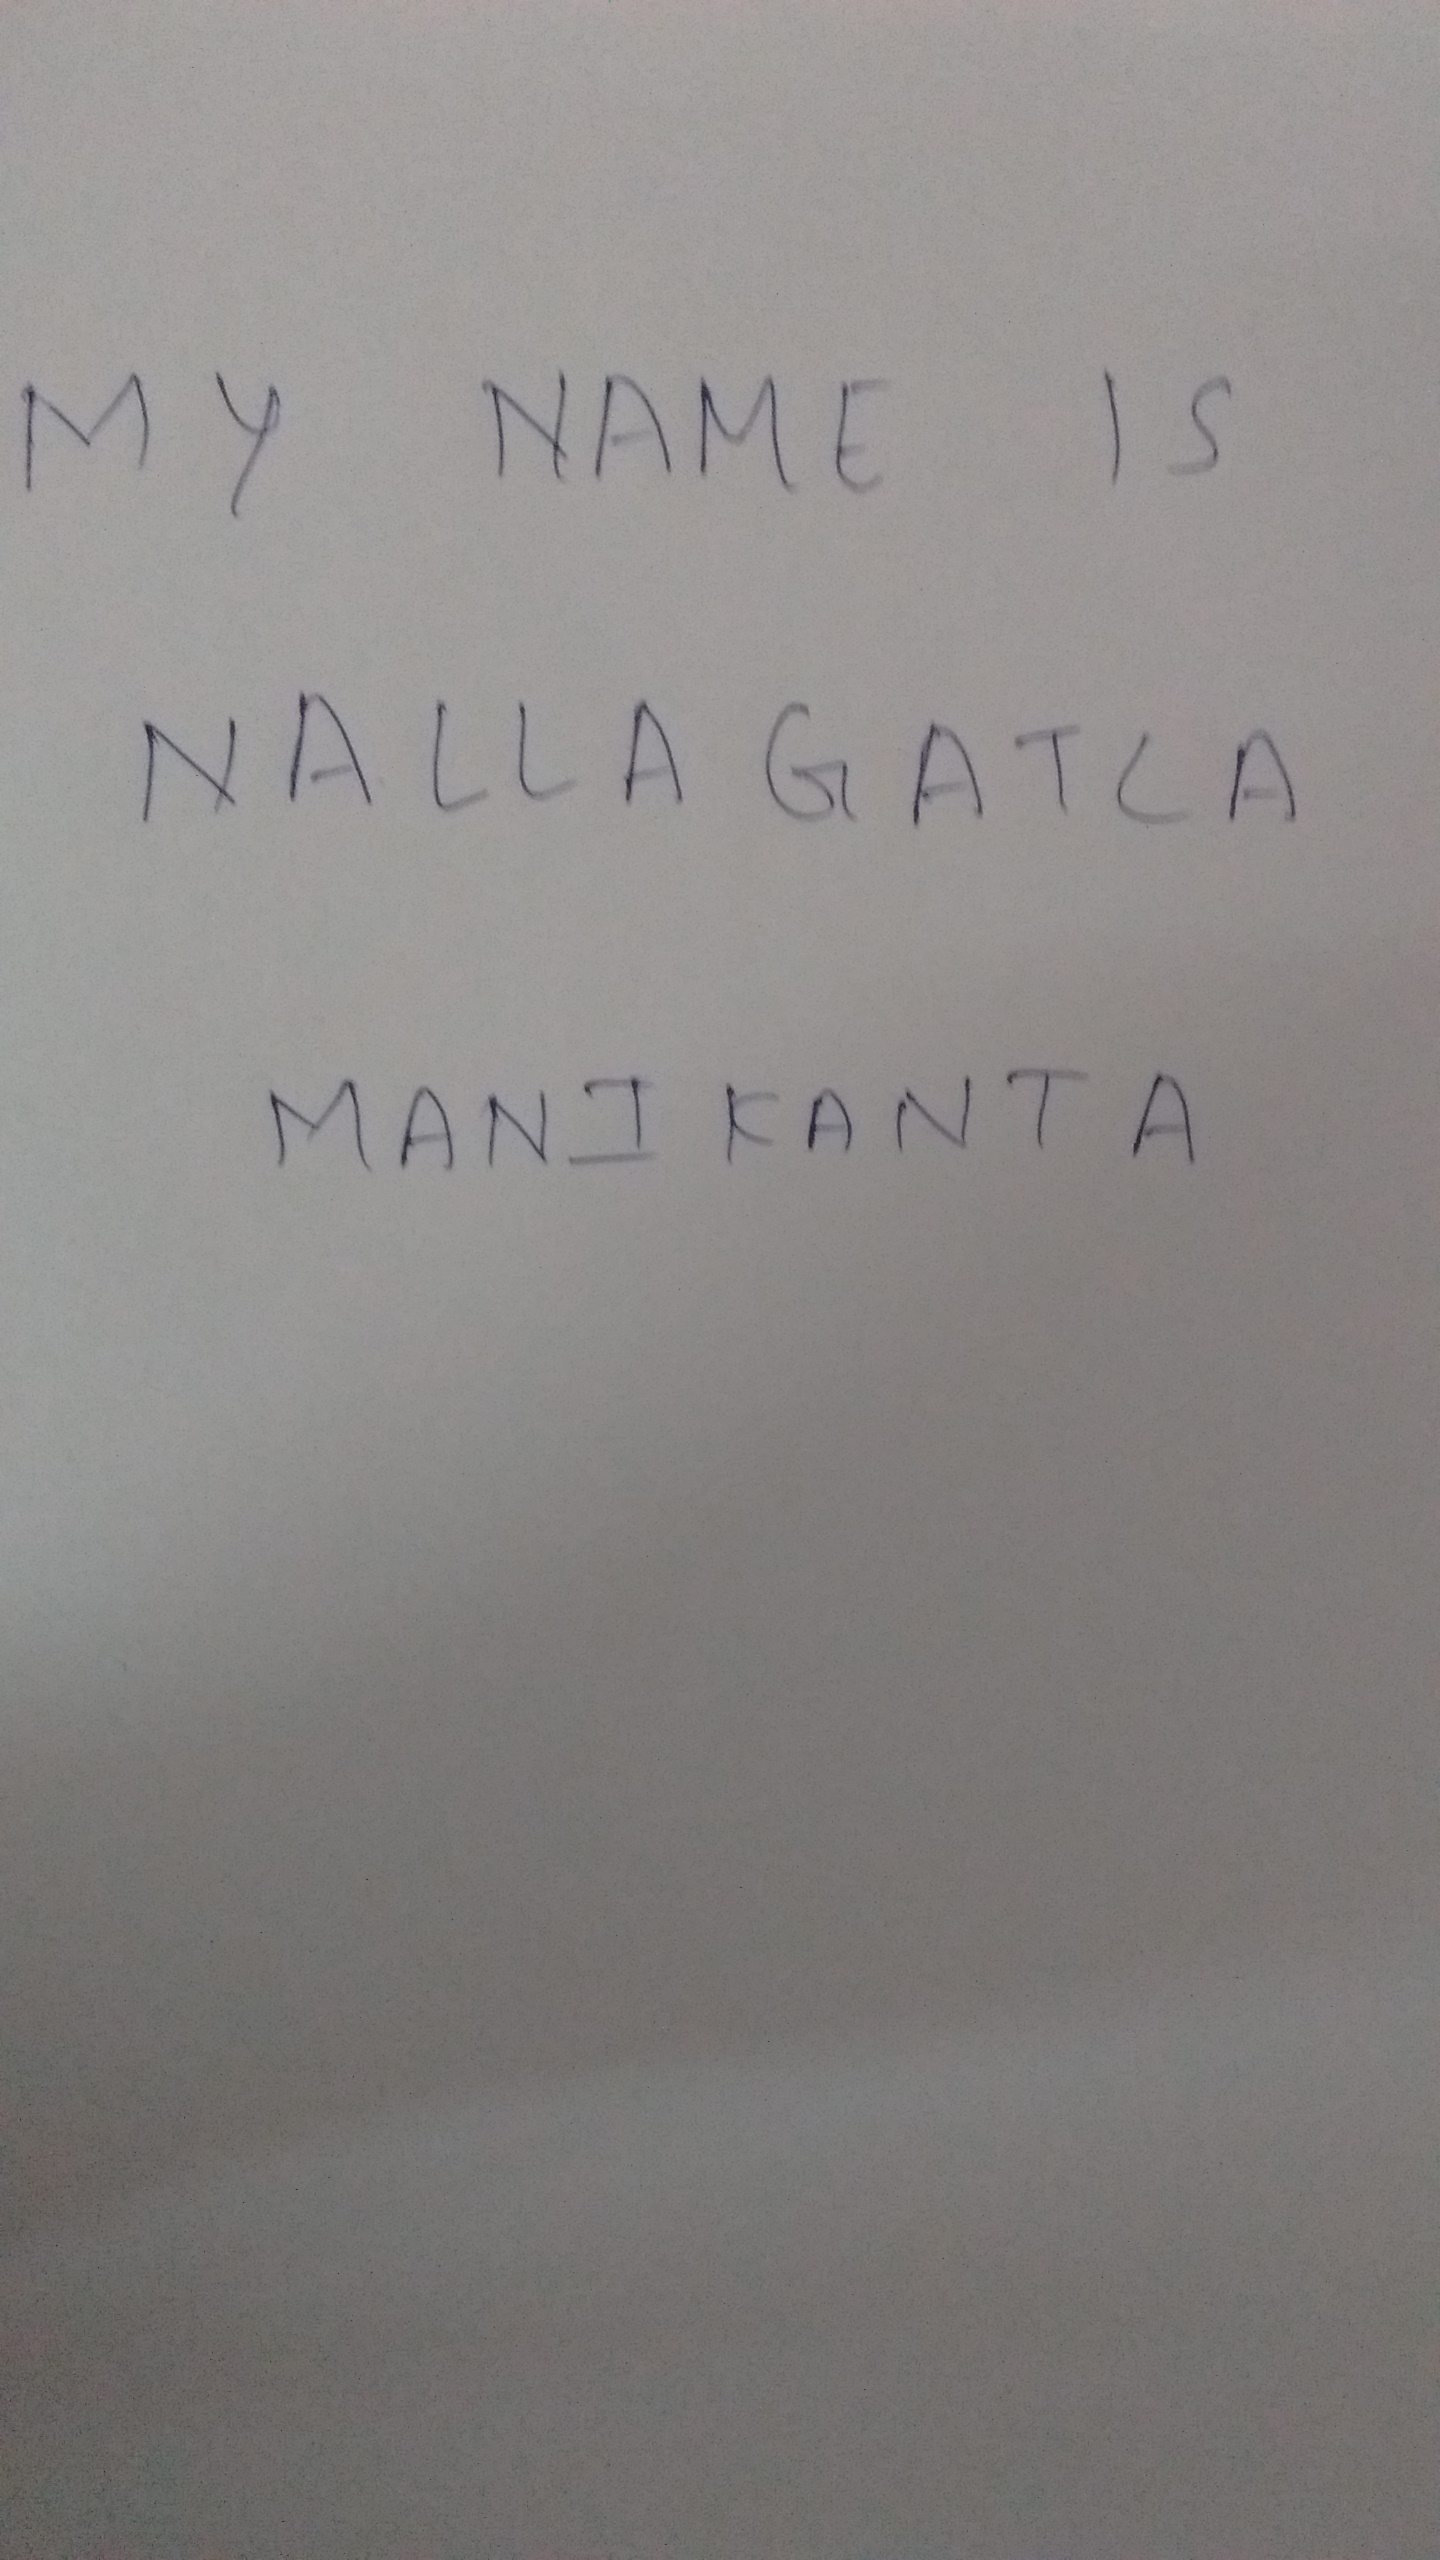 MY NAME IS
NALLAGATLA
MANIKANTA